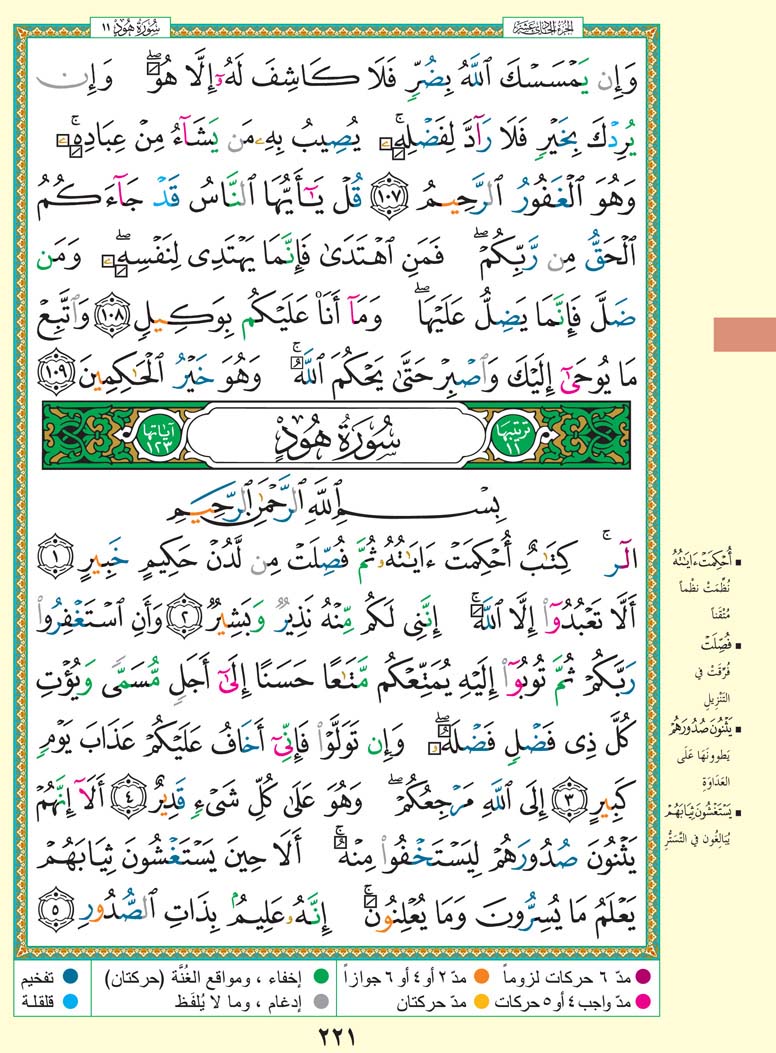 الجزء الحادي عشر
سُورَةُ هُودٍ ١١
وَإِن يَمْسَسْكَ ٱللَّهُ بِضُرٍّۢ فَلَا كَاشِفَ لَهُۥٓ إِلَّا هُوَ ۖ وَإِن
يُرِدْكَ بِخَيْرٍۢ فَلَا رَآدَّ لِفَضْلِهِۦ ۚ يُصِيبُ بِهِۦ مَن يَشَآءُ مِنْ عِبَادِهِۦ ۚ
وَهُوَ ٱلْغَفُورُ ٱلرَّحِيمُ ١٠٧ قُلْ يَـٰٓأَيُّهَا ٱلنَّاسُ قَدْ جَآءَكُمُ
ٱلْحَقُّ مِن رَّبِّكُمْ ۖ فَمَنِ ٱهْتَدَىٰ فَإِنَّمَا يَهْتَدِى لِنَفْسِهِۦ ۖ وَمَن
ضَلَّ فَإِنَّمَا يَضِلُّ عَلَيْهَا ۖ وَمَآ أَنَا۠ عَلَيْكُم بِوَكِيلٍۢ ١٠٨ وَٱتَّبِعْ
مَا يُوحَىٰٓ إِلَيْكَ وَٱصْبِرْ حَتَّىٰ يَحْكُمَ ٱللَّهُ ۚ وَهُوَ خَيْرُ ٱلْحَـٰكِمِينَ ١٠٩
ترتيبها ١١
سُورَةُ هُودٍ
آياتها ١٢٣
بِسْمِ ٱللَّهِ ٱلرَّحْمَـٰنِ ٱلرَّحِيمِ
الٓر ۚ كِتَـٰبٌ أُحْكِمَتْ ءَايَـٰتُهُۥ ثُمَّ فُصِّلَتْ مِن لَّدُنْ حَكِيمٍ خَبِيرٍ ١
أَلَّا تَعْبُدُوٓا۟ إِلَّا ٱللَّهَ ۚ إِنَّنِى لَكُم مِّنْهُ نَذِيرٌۭ وَبَشِيرٌۭ ٢ وَأَنِ ٱسْتَغْفِرُوا۟
رَبَّكُمْ ثُمَّ تُوبُوٓا۟ إِلَيْهِ يُمَتِّعْكُم مَّتَـٰعًا حَسَنًا إِلَىٰٓ أَجَلٍۢ مُّسَمًّۭى وَيُؤْتِ
كُلَّ ذِى فَضْلٍۢ فَضْلَهُۥ ۖ وَإِن تَوَلَّوْا۟ فَإِنِّىٓ أَخَافُ عَلَيْكُمْ عَذَابَ يَوْمٍۢ
كَبِيرٍ ٣ إِلَى ٱللَّهِ مَرْجِعُكُمْ ۖ وَهُوَ عَلَىٰ كُلِّ شَىْءٍۢ قَدِيرٌ ٤ أَلَآ إِنَّهُمْ
يَثْنُونَ صُدُورَهُمْ لِيَسْتَخْفُوا۟ مِنْهُ ۚ أَلَا حِينَ يَسْتَغْشُونَ ثِيَابَهُمْ
يَعْلَمُ مَا يُسِرُّونَ وَمَا يُعْلِنُونَ ۚ إِنَّهُۥ عَلِيمٌۢ بِذَاتِ ٱلصُّدُورِ ٥
▪ أُحْكِمَتْ ءَايَـٰتُهُ
نُظِّمَتْ نَظْماً
مُتْقَناً
▪ فُصِّلَتْ
فُرِّقَتْ فِي
التَّنْزِيلِ
▪ يَثْنُونَ صُدُورَهُمْ
يَطْوُونَهَا عَلَى
العَدَاوَةِ
▪ يَسْتَغْشُونَ ثِيَابَهُمْ
يُبَالِغُون فِي التَّسَتُّرِ
مدّ ٦ حركات لزوماً
مدّ ٢ أو ٤ أو ٦ جوازاً
إخفاء ، ومواقع الغُنَّة (حركتان)
تفخيم
مدّ واجب ٤ أو ٥ حركات
مدّ حركتان
إدغام ، وما لا يُلفَظ
قلقلة
٢٢١